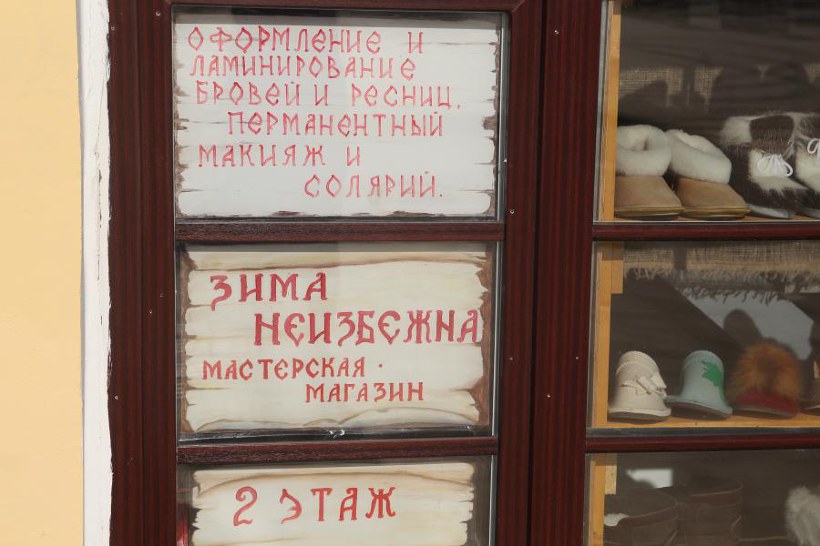 ОФОРМЛЕНИЕ И
ЛАМИНИРОВАНИЕ
БРОВЕЙ И РЕСНИЦ.
ПЕРМАНЕНТНЫЙ
МАКИЯЖ И
СОЛЯРИЙ.
ЗИМА
НЕИЗБЕЖНА
МАСТЕРСКАЯ ·
МАГАЗИН
2 ЭТАЖ